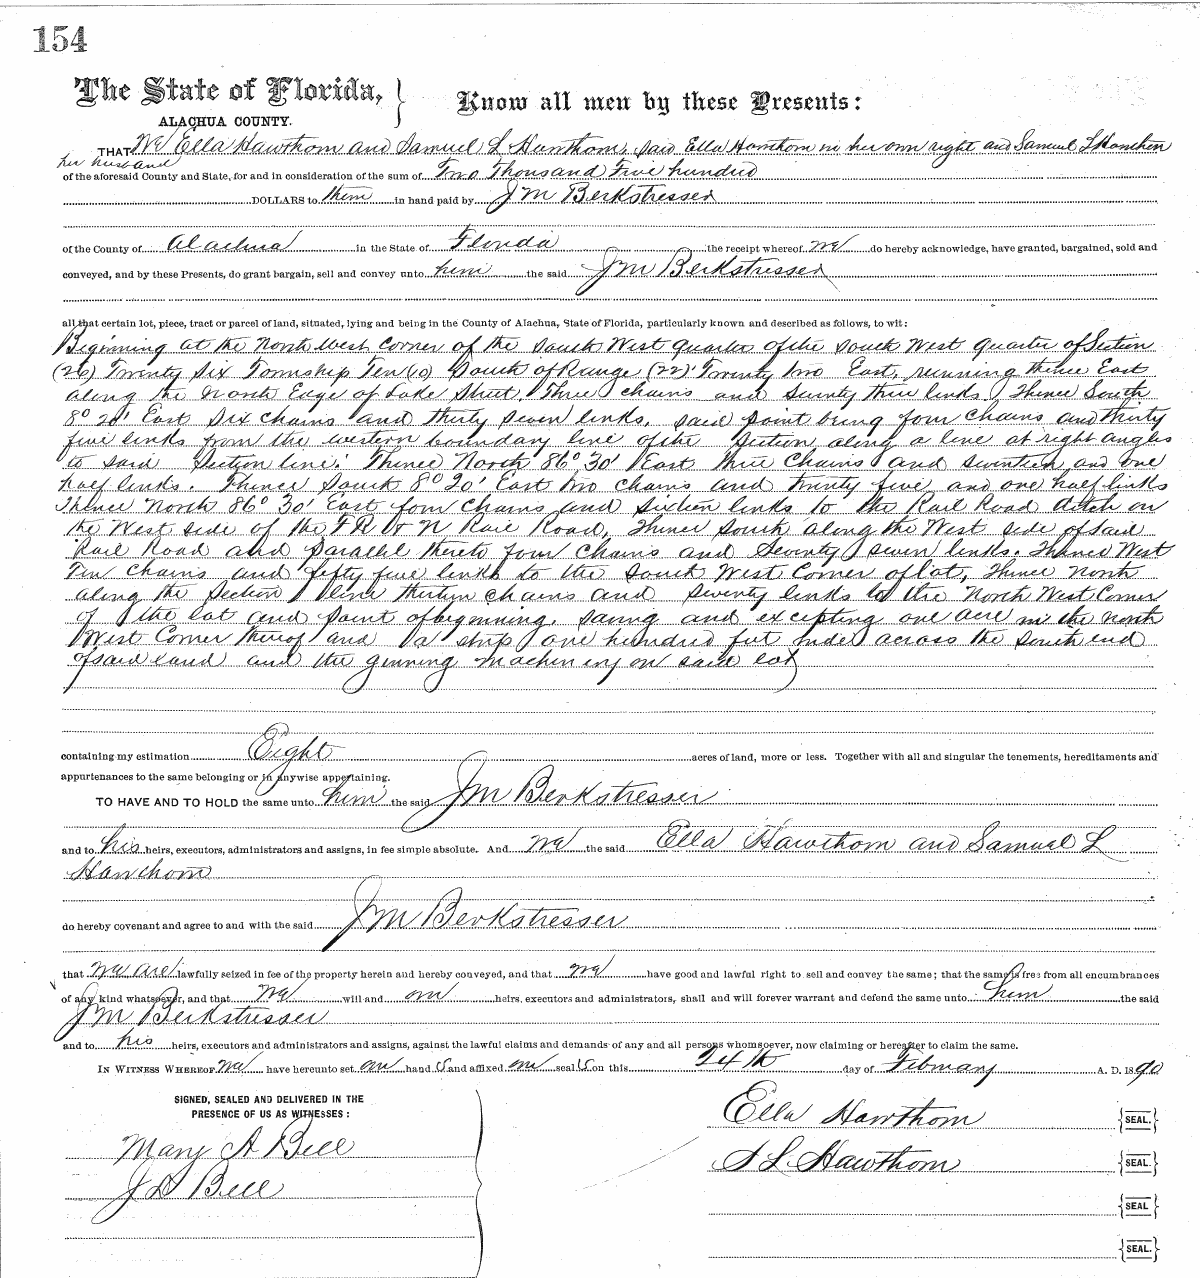 154
The State of Florida,
ALACHUA COUNTY.
Know all men by these Presents:
THAT We Ella Hawthorn and Samuel L Hawthorn, said Ella Hawthorn in her own right and Samuel L Hawthorn
her husband
of the aforesaid County and State, for and in consideration of the sum of Two Thousand Five hundred
DOLLARS to them in hand paid by J M Berkstresser
of the County of Alachua in the State of Florida the receipt whereof we do hereby acknowledge, have granted, bargained, sold and
conveyed, and by these Presents, do grant bargain, sell and convey unto him the said J M Berkstresser
all that certain lot, piece, tract or parcel of land, situated, lying and being in the County of Alachua, State of Florida, particularly known and described as follows, to wit:
Beginning at the North West Corner of the South West quarter of the South West quarter of Section
(26) Twenty Six Township Ten (10) South of Range (22) Twenty two East, running thence East
along the North Edge of Lake Street, Three chains and seventy three links, Thence South
8° 20' East Six chains and thirty seven links, said point being four chains and thirty
five links from the western boundary line of the Section along a line at right angles
to said Section line. Thence North 86° 30' East three chains and seventeen and one
half links. Thence South 8° 20' East two chains and twenty five and one half links
Thence North 86° 30' East four chains and sixteen links to the Rail Road ditch on
the West side of the F R & N Rail Road, Thence South along the West side of said
Rail Road and parallel thereto four chains and Seventy seven links. Thence West
Ten chains and fifty five links to the South West Corner of lot, Thence North
along the Section line thirteen chains and seventy links to the North West Corner
of the lot and point of beginning. Saving and excepting one acre in the north
West Corner thereof and a strip one hundred feet wide across the South end
of said land and the ginning machinery on said lot
containing my estimation Eight acres of land, more or less. Together with all and singular the tenements, hereditaments and
appurtenances to the same belonging or in anywise appertaining.
TO HAVE AND TO HOLD the same unto him the said J M Berkstresser
and to his heirs, executors, administrators and assigns, in fee simple absolute. And we the said Ella Hawthorn and Samuel L
Hawthorn
do hereby covenant and agree to and with the said J M Berkstresser
that we are lawfully seized in fee of the property herein and hereby conveyed, and that we have good and lawful right to sell and convey the same; that the same is free from all encumbrances
of any kind whatsoever, and that we will and our heirs, executors and administrators, shall and will forever warrant and defend the same unto him the said
J M Berkstresser
and to his heirs, executors and administrators and assigns, against the lawful claims and demands of any and all persons whomsoever, now claiming or hereafter to claim the same.
IN WITNESS WHEREOF we have hereunto set our hand s and affixed our seal s on this 24th day of February A. D. 1890
SIGNED, SEALED AND DELIVERED IN THE
PRESENCE OF US AS WITNESSES:
Mary A Bell
J D Bell
Ella Hawthorn SEAL.
S L Hawthorn SEAL.
SEAL
SEAL.